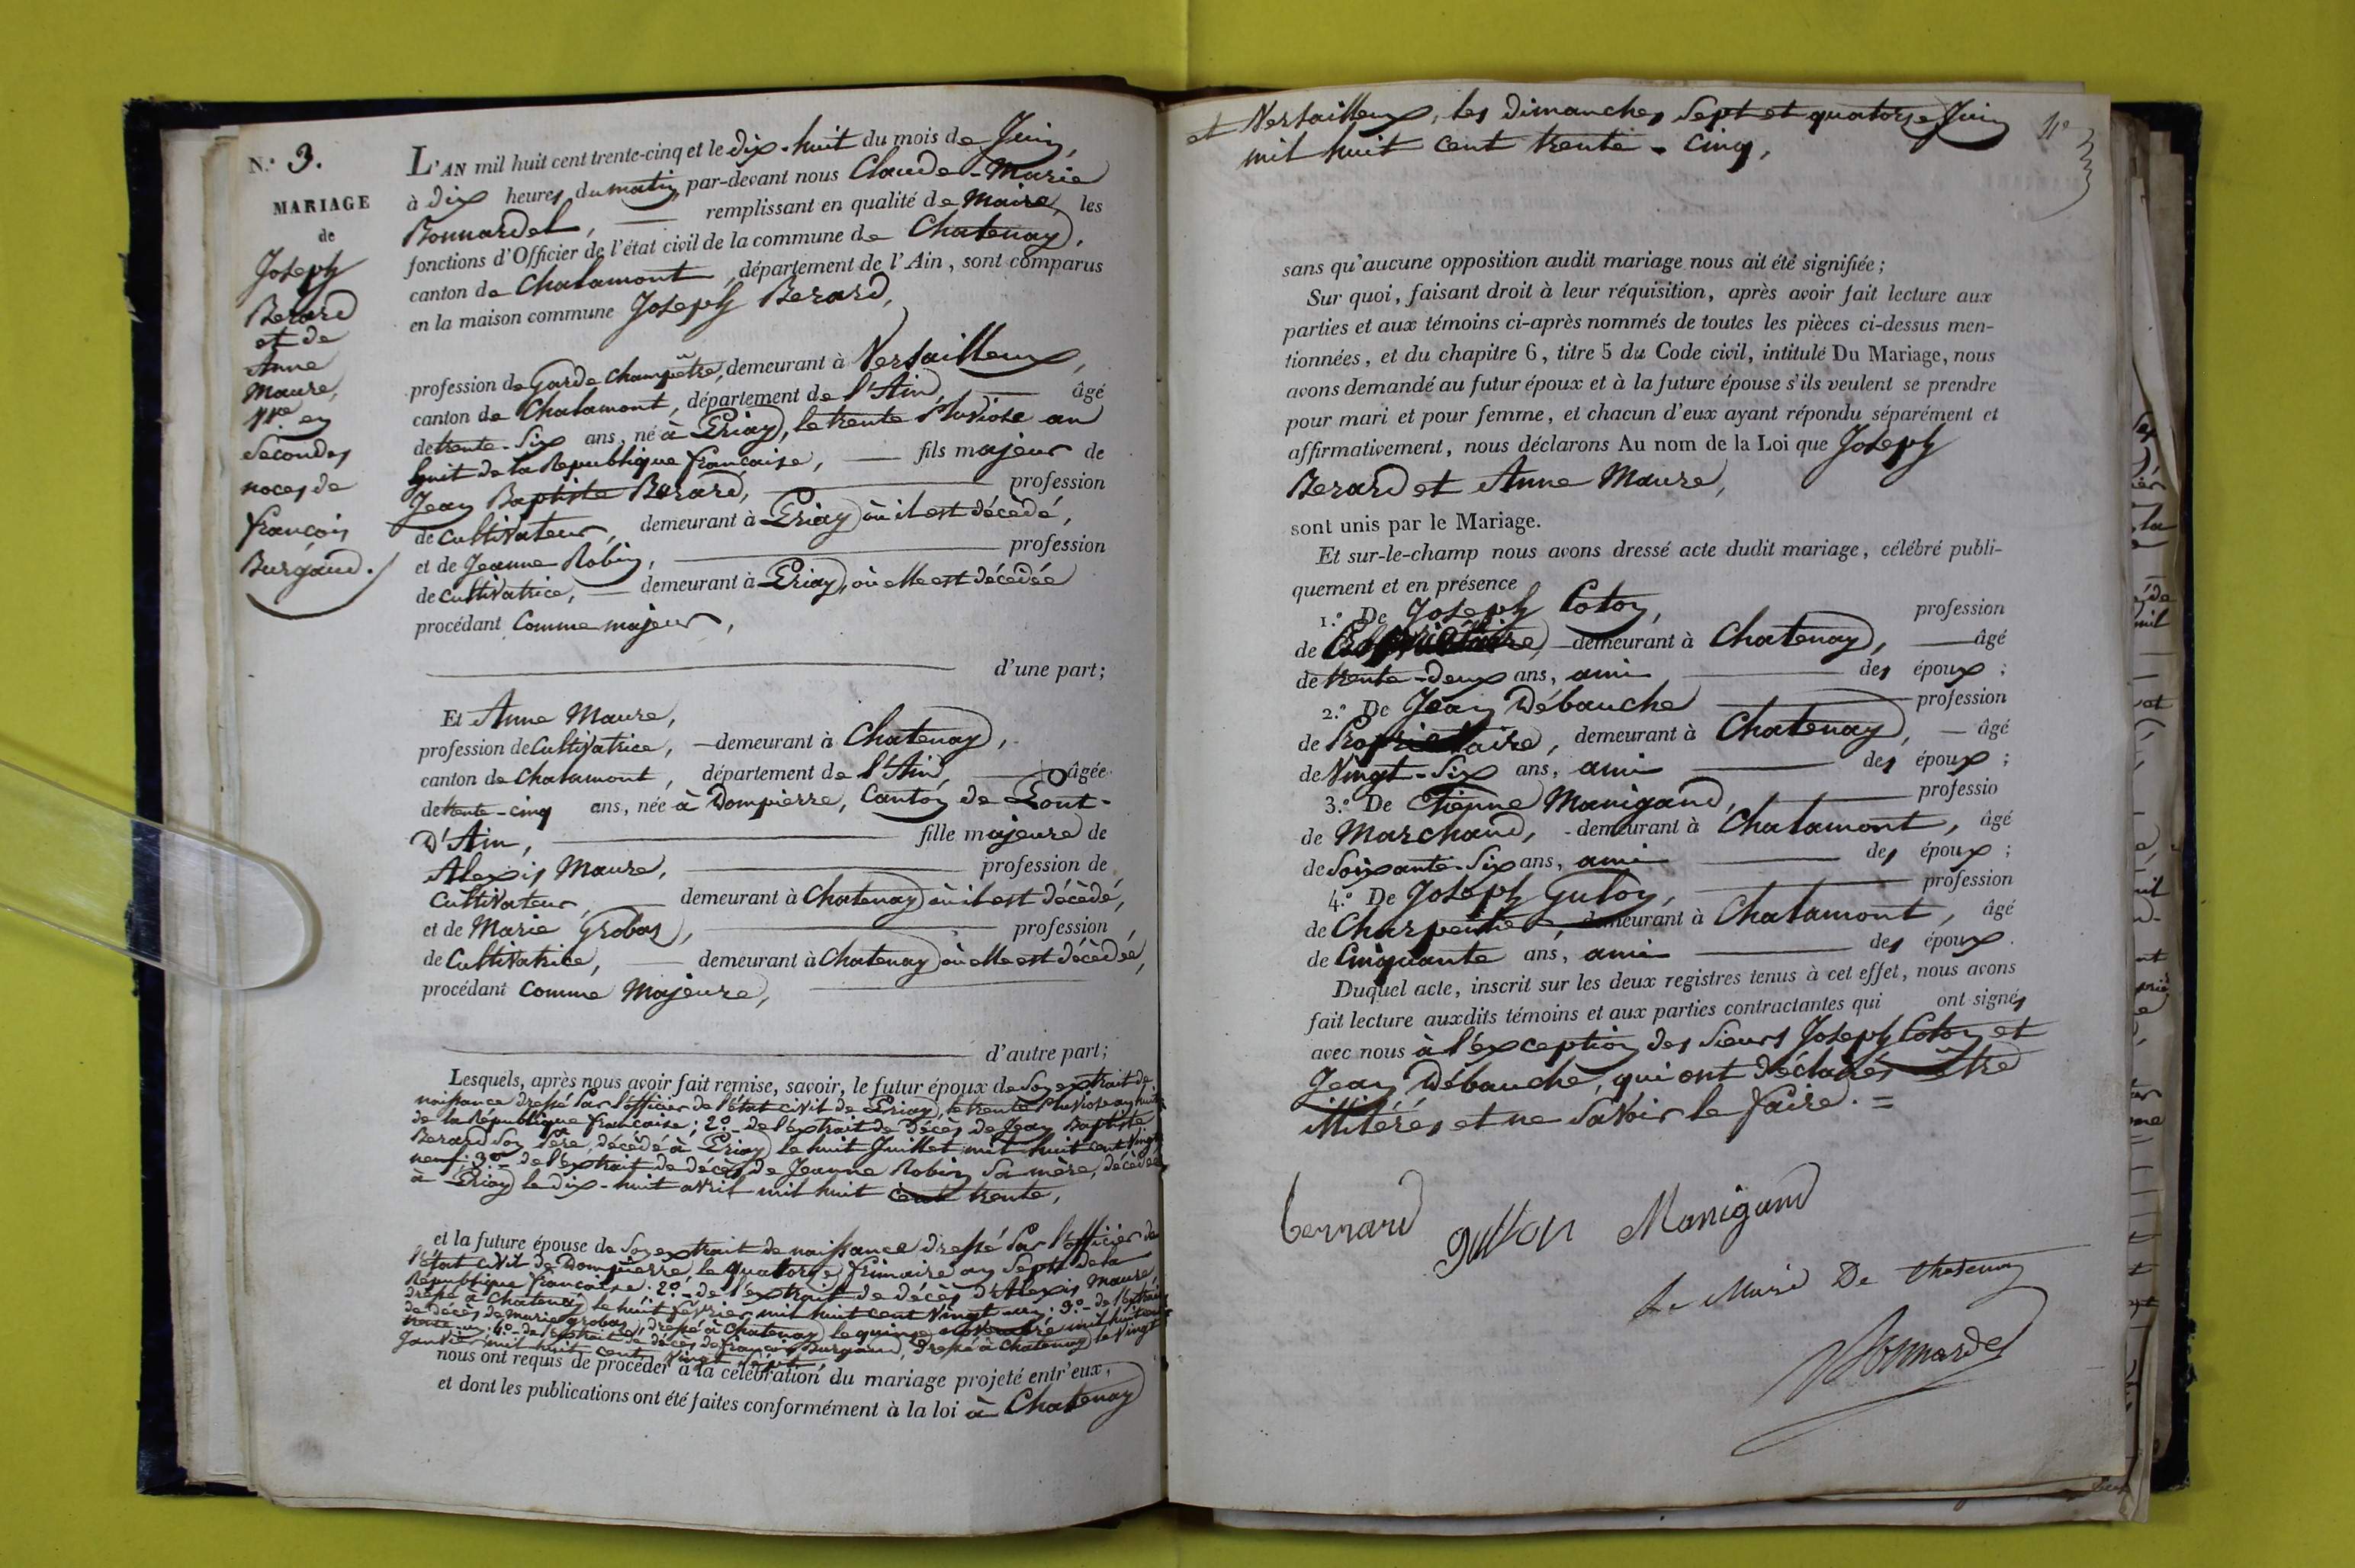 N.° 3.
MARIAGE
de
Joseph
Berard
et de
Anne
Maure,
Vve en
Secondes
noces de
françois
Burgaud.
L'AN mil huit cent trente-cinq et le dix-huit du mois de Juin,
à dix heures du matin, par-devant nous Claude-Marie
Bonnardel, remplissant en qualité de Maire, les
fonctions d'Officier de l'état civil de la commune de Chatenay,
canton de Chalamont, département de l'Ain, sont comparus
en la maison commune Joseph Berard,
profession de Garde champêtre, demeurant à Versailleux,
canton de Chalamont, département de l'Ain, âgé
de trente-Six ans, né à Priay, le trente Pluviose an
huit de la République française, fils majeur de
Jean Baptiste Berard, profession
de cultivateur, demeurant à Priay où il est décédé,
et de Jeanne Robin, profession
de cultivatrice, demeurant à Priay, où elle est décédée
procédant Comme majeur,
d'une part;
Et Anne Maure,
profession de Cultivatrice, demeurant à Chatenay,
canton de Chalamont, département de l'Ain, âgée
de trente-cinq ans, née à Dompierre, Canton de Pont-
D'Ain, fille majeure de
Alexis Maure, profession de
Cultivateur, demeurant à Chatenay où il est décédé,
et de Marie Grobas, profession
de Cultivatrice, demeurant à Chatenay où elle est décédée,
procédant Comme Majeure,
d'autre part;
Lesquels, après nous avoir fait remise, savoir, le futur époux de Son extrait de
naissance dressé Par l'officier de l'état civil de Priay, le trente Pluviose an huit
de la République française; 2.° de l'extrait de décès de Jean Baptiste
Berard Son Père, décédé à Priay le huit Juillet mil huit cent Vingt
neuf; 3.° de l'extrait de décès de Jeanne Robin Sa mère, décédée
à Priay le dix-huit avril mil huit cent trente,
et la future épouse de Son extrait de naissance dressé Par l'officier de
l'état civil de Dompierre, le quatorze frimaire an Sept de la
République française; 2.° de l'extrait de décès d'Alexis Maure
dressé à Chatenay le huit février mil huit cent Vingt un; 3.° de l'extrait
de décès de Marie Grobas, dressé à Chatenay le quinze novembre mil huit cent
trente un; 4.° de l'extrait de décès de françois Burgaud, dressé à Chatenay le Vingt
Janvier mil huit cent Vingt Sept,
nous ont requis de procéder à la célébration du mariage projeté entr'eux,
et dont les publications ont été faites conformément à la loi à Chatenay
et Versailleux, les dimanches Sept et quatorze Juin
mil huit cent trente-cinq,
sans qu'aucune opposition audit mariage nous ait été signifiée;
Sur quoi, faisant droit à leur réquisition, après avoir fait lecture aux
parties et aux témoins ci-après nommés de toutes les pièces ci-dessus men-
tionnées, et du chapitre 6, titre 5 du Code civil, intitulé Du Mariage, nous
avons demandé au futur époux et à la future épouse s'ils veulent se prendre
pour mari et pour femme, et chacun d'eux ayant répondu séparément et
affirmativement, nous déclarons Au nom de la Loi que Joseph
Berard et Anne Maure,
sont unis par le Mariage.
Et sur-le-champ nous avons dressé acte dudit mariage, célébré publi-
quement et en présence
1.° De Joseph Coton, profession
de demeurant à Chatenay, âgé
de trente-deux ans, ami des époux;
2.° De Jean Débauche profession
de Propriétaire, demeurant à Chatenay, âgé
de Vingt-Six ans, ami des époux;
3.° De Etienne Manigand, professio
de Marchand, demeurant à Chalamont, âgé
de Soixante-Six ans, ami des époux;
4.° De Joseph Guton, profession
de Charpentier, demeurant à Chalamont, âgé
de Cinquante ans, ami des époux.
Duquel acte, inscrit sur les deux registres tenus à cet effet, nous avons
fait lecture auxdits témoins et aux parties contractantes qui ont signés
avec nous à l'exception des Sieurs Joseph Coton et
Jean Débauche, qui ont déclarés être
illitérés et ne Savoir le faire. =
berrard gutton Manigand
Le Maire De Chatenay
Bonnardel